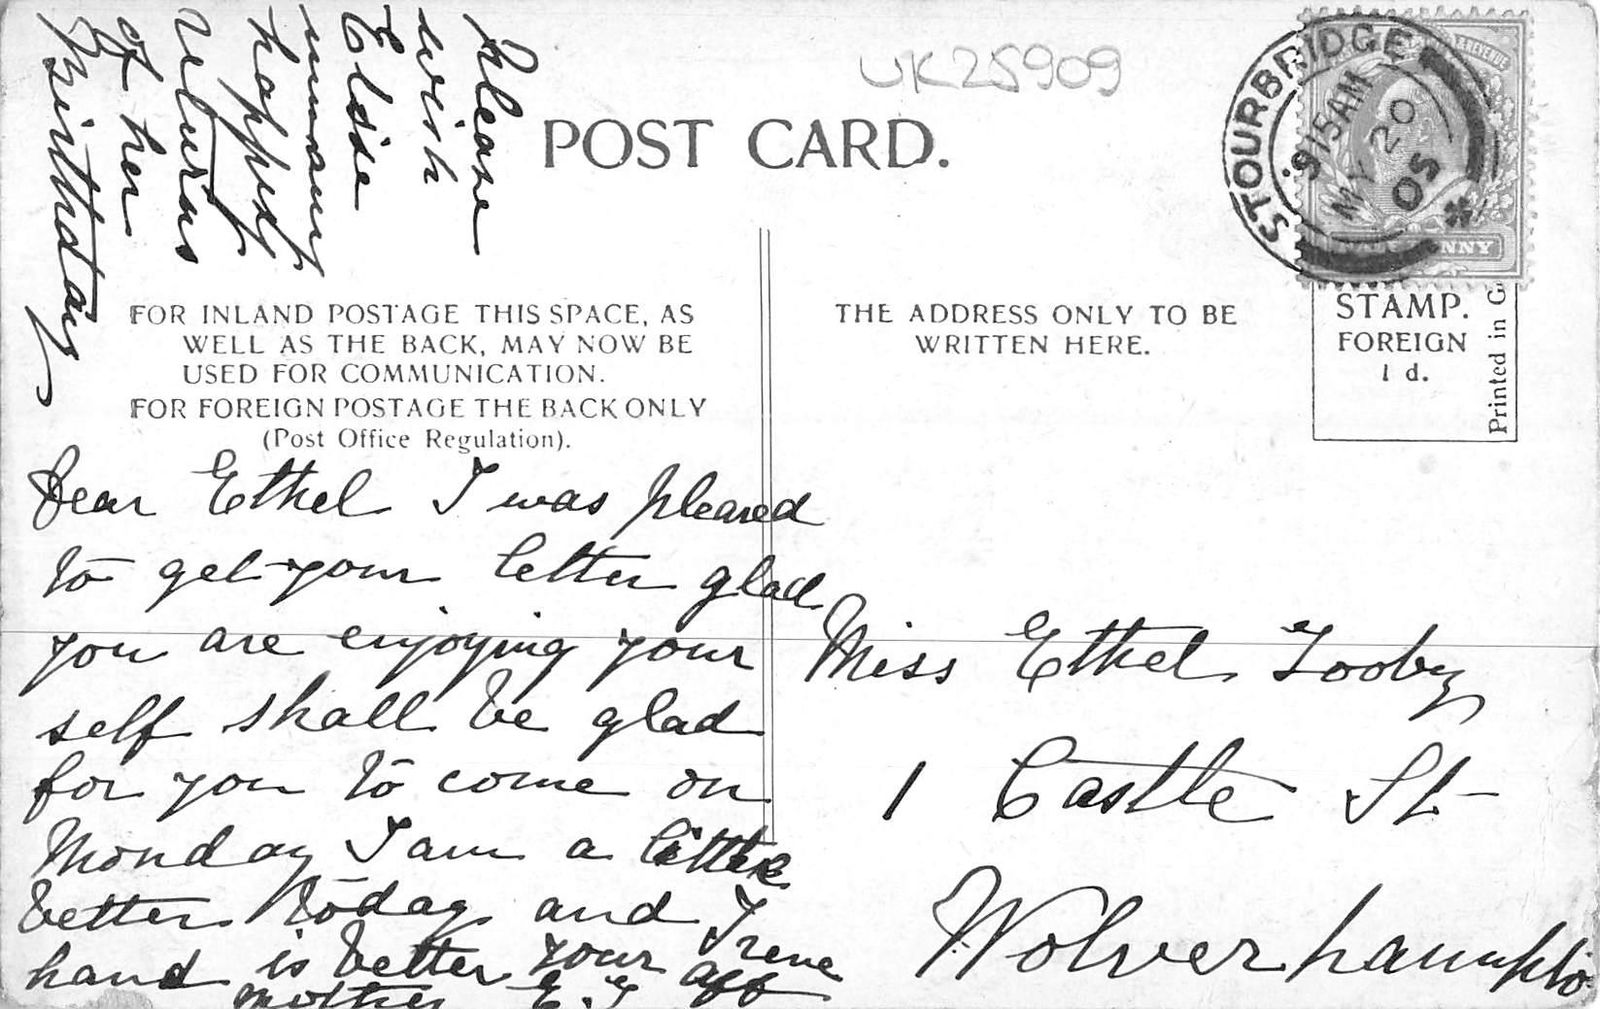 Please
wish
Elsie
many
happy
returns
of her
Birthday
UK25909
POST CARD.
STOURBRIDGE
9 15AM
MY 20
05
NNY
& REVENUE
FOR INLAND POSTAGE THIS SPACE, AS
WELL AS THE BACK, MAY NOW BE
USED FOR COMMUNICATION.
FOR FOREIGN POSTAGE THE BACK ONLY
(Post Office Regulation).
THE ADDRESS ONLY TO BE
WRITTEN HERE.
STAMP.
FOREIGN
1 d.
Printed in G
Dear Ethel I was pleased
to get your letter glad
you are enjoying your
self shall be glad
for you to come on
Monday I am a little
better today and Irene
hand is better your aff
mother E.
Miss Ethel Tooby
1 Castle St
Wolverhampto